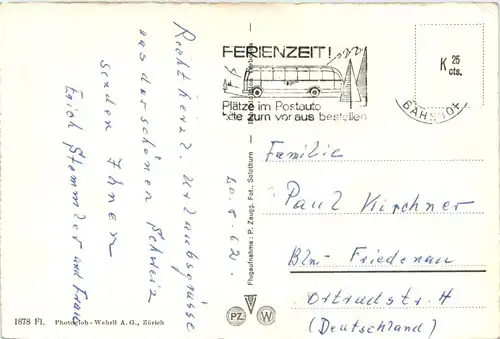 Recht herzl. Urlaubsgrüsse
aus der schönen Schweiz
senden Ihnen
Erich Stemmler und Frau
20.8.62.
FERIENZEIT!
Plätze im Postauto
bitte zum voraus bestellen
K 25
cts.
BAHNHOF
Familie
Paul Kirchner
Bln- Friedenau
Ortrudstr. 4
(Deutschland)
Flugaufnahme: P. Zaugg. Fot., Solothurn
PZ W
1878 Fl. Photoglob-Wehrli A.G., Zürich